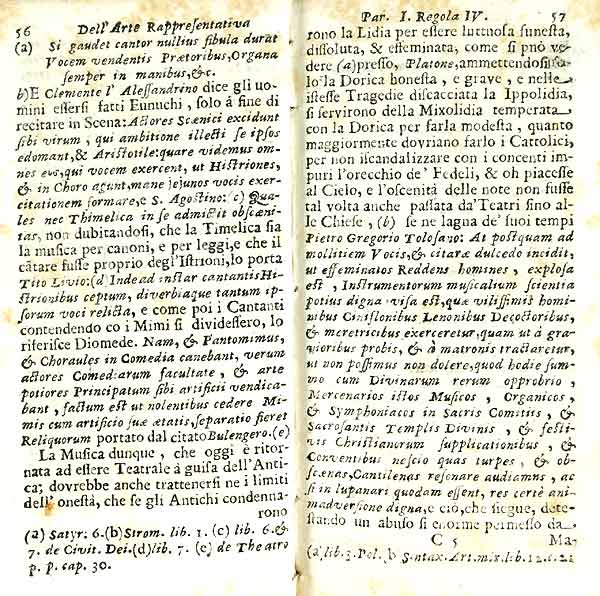 56 Dell'Arte Rappresentativa
(a) Si gaudet cantor nullius fibula durat
Vocem vendentis Prætoribus, Organa
semper in manibus, &c.
b) E Clemente l'Alessandrino dice gli uo-
mini essersi fatti Eunuchi, solo à fine di
recitare in Scena: Actores Scænici excidunt
sibi virum, qui ambitione illecti se ipsos
edomant, & Aristotile: quare videmus om-
nes eos, qui vocem exercent, ut Histriones,
& in Choro agunt, mane jejunos vocis exer-
citationem formare, e S. Agostino: c) Qua-
les nec Thimelica in se admisit obscæni-
tas, non dubitandosi, che la Timelica sia
la musica per canoni, e per leggi, e che il
cãtare fusse proprio degl'Istrioni, lo porta
Tito Livio: (d) Inde ad instar cantantis Hi-
strionibus ceptum, diverbiaque tantum ip-
sorum voci relicta, e come poi i Cantanti
contendendo co i Mimi si dividessero, lo
riferisce Diomede. Nam, & Pantomimus,
& Choraules in Comedia canebant, verum
actores Comediarum facultate, & arte
potiores Principatum sibi artificii vendica-
bant, factum est ut nolentibus cedere Mi-
mis cum artificio suæ ætatis, separatio fieret
Reliquorum portato dal citato Bulengero. (e)
La Musica dunque, che oggi è ritor-
nata ad essere Teatrale à guisa dell'Anti-
ca; dovrebbe anche trattenersi ne i limiti
dell'onestà, che se gli Antichi condenna-
rono
(a) Satyr. 6. (b) Strom. lib. 1. (c) lib. 6. &
7. de Civit. Dei. (d) lib. 7. (e) de Theatro
p. p. cap. 30.
Par. I. Regola IV. 57
rono la Lidia per essere luttuosa funesta,
dissoluta, & effeminata, come si può ve-
dere (a) presso, Platone, ammettendosi so-
lo la Dorica honesta, e grave, e nelle
istesse Tragedie discacciata la Ippolidia,
si servirono della Mixolidia temperata
con la Dorica per farla modesta, quanto
maggiormente dovriano farlo i Cattolici,
per non iscandalizzare con i concenti im-
puri l'orecchio de' Fedeli, & oh piacesse
al Cielo, e l'oscenità delle note non fusse
tal volta anche passata da' Teatri sino al-
le Chiese, (b) se ne lagna de' suoi tempi
Pietro Gregorio Tolosano: At postquam ad
mollitiem Vocis, & citaræ dulcedo incidit,
ut effeminatos Reddens homines, explosa
est, Instrumentorum musicalium scientia
potius digna visa est, quæ vilissimis homi-
nibus Ciniflonibus Lenonibus Decoctoribus,
& meretricibus exerceretur, quam ut à gra-
vioribus probis, & à matronis tractaretur,
ut non possimus non dolere, quod hodie sum-
mo cum Divinarum rerum opprobrio,
Mercenarios istos Musicos, Organicos,
& Symphoniacos in Sacris Comitiis, &
Sacrosantis Templis Divinis, & festi-
vis Christianorum supplicationibus, &
Conventibus nescio quas turpes, & ob-
scænas, Cantilenas resonare audiamus, ac
si in lupanari quodam essent, res certè ani-
madversione digna, e ciò, che siegue, dete-
stando un abuso si enorme permesso da
C 5 Ma-
(a) lib. 3. Pol. (b Sintax. Art. mis. lib. 12. c. 21